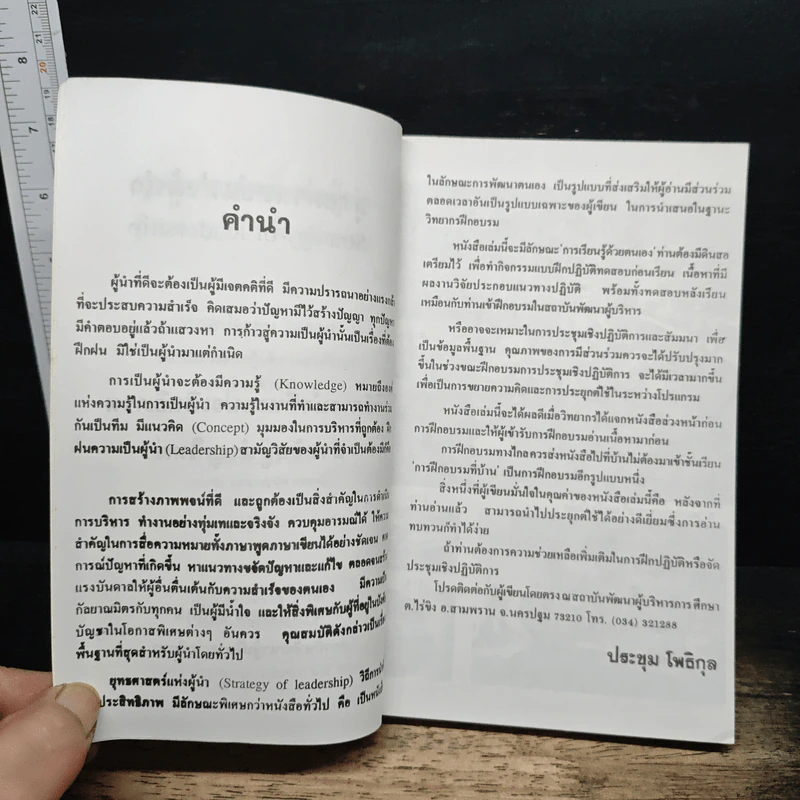 คำนำ
ผู้นำที่ดีจะต้องเป็นผู้มีเจตคติที่ดี มีความปรารถนาอย่างแรงกล้า
ที่จะประสบความสำเร็จ คิดเสมอว่าปัญหามีไว้สร้างปัญญา ทุกปัญหา
มีคำตอบอยู่แล้วถ้าแสวงหา การก้าวสู่ความเป็นผู้นำนั้นเป็นเรื่องที่ต้อง
ฝึกฝน มิใช่เป็นผู้นำมาแต่กำเนิด
การเป็นผู้นำจะต้องมีความรู้ (Knowledge) หมายถึงองค์
แห่งความรู้ในการเป็นผู้นำ ความรู้ในงานที่ทำและสามารถทำงานร่วม
กันเป็นทีม มีแนวคิด (Concept) มุมมองในการบริหารที่ถูกต้อง ฝึก
ฝนความเป็นผู้นำ (Leadership) สามัญวิสัยของผู้นำที่จำเป็นต้องมีก็คือ
การสร้างภาพพจน์ที่ดี และถูกต้องเป็นสิ่งสำคัญในการดำเนิน
การบริหาร ทำงานอย่างทุ่มเทและจริงจัง ควบคุมอารมณ์ได้ ให้ความ
สำคัญในการสื่อความหมายทั้งภาษาพูดภาษาเขียนได้อย่างชัดเจน
การณ์ปัญหาที่เกิดขึ้น หาแนวทางขจัดปัญหาและแก้ไข ตลอดจนสร้าง
แรงบันดาลให้ผู้อื่นตื่นเต้นกับความสำเร็จของตนเอง มีความเป็น
กัลยาณมิตรกับทุกคน เป็นผู้มีน้ำใจ และให้สิ่งพิเศษกับผู้ที่อยู่ในบังคับ
บัญชาในโอกาสพิเศษต่างๆ อันควร คุณสมบัติดังกล่าวเป็นเรื่อง
พื้นฐานที่สุดสำหรับผู้นำโดยทั่วไป
ยุทธศาสตร์แห่งผู้นำ (Strategy of leadership) วิธีการนำที่
ประสิทธิภาพ มีลักษณะพิเศษกว่าหนังสือทั่วไป คือ เป็นหนังสือ
ในลักษณะการพัฒนาตนเอง เป็นรูปแบบที่ส่งเสริมให้ผู้อ่านมีส่วนร่วม
ตลอดเวลาอันเป็นรูปแบบเฉพาะของผู้เขียน ในการนำเสนอในฐานะ
วิทยากรฝึกอบรม
หนังสือเล่มนี้จะมีลักษณะ 'การเรียนรู้ด้วยตนเอง' ท่านต้องมีดินสอ
เตรียมไว้ เพื่อทำกิจกรรมแบบฝึกปฏิบัติทดสอบก่อนเรียน เนื้อหาที่มี
ผลงานวิจัยประกอบแนวทางปฏิบัติ พร้อมทั้งทดสอบหลังเรียน
เหมือนกับท่านเข้าฝึกอบรมในสถาบันพัฒนาผู้บริหาร
หรืออาจจะเหมาะในการประชุมเชิงปฏิบัติการและสัมมนา เพื่อ
เป็นข้อมูลพื้นฐาน คุณภาพของการมีส่วนร่วมควรจะได้ปรับปรุงมาก
ขึ้นในช่วงขณะฝึกอบรมการประชุมเชิงปฏิบัติการ จะได้มีเวลามากขึ้น
เพื่อเป็นการขยายความคิดและการประยุกต์ใช้ในระหว่างโปรแกรม
หนังสือเล่มนี้จะได้ผลดีเมื่อวิทยากรได้แจกหนังสือล่วงหน้าก่อน
การฝึกอบรมและให้ผู้เข้ารับการฝึกอบรมอ่านเนื้อหามาก่อน
การฝึกอบรมทางไกลควรส่งหนังสือไปที่บ้านไม่ต้องมาเข้าชั้นเรียน
'การฝึกอบรมที่บ้าน' เป็นการฝึกอบรมอีกรูปแบบหนึ่ง
สิ่งหนึ่งที่ผู้เขียนมั่นใจในคุณค่าของหนังสือเล่มนี้คือ หลังจากที่
ท่านอ่านแล้ว สามารถนำไปประยุกต์ใช้ได้อย่างดีเยี่ยมซึ่งการอ่าน
ทบทวนก็ทำได้ง่าย
ถ้าท่านต้องการความช่วยเหลือเพิ่มเติมในการฝึกปฏิบัติหรือจัด
ประชุมเชิงปฏิบัติการ
โปรดติดต่อกับผู้เขียนโดยตรง ณ สถาบันพัฒนาผู้บริหารการศึกษา
ต.ไร่ขิง อ.สามพราน จ.นครปฐม 73210 โทร. (034) 321288
ประชุม โพธิกุล
8
7
6
22
21
20
19